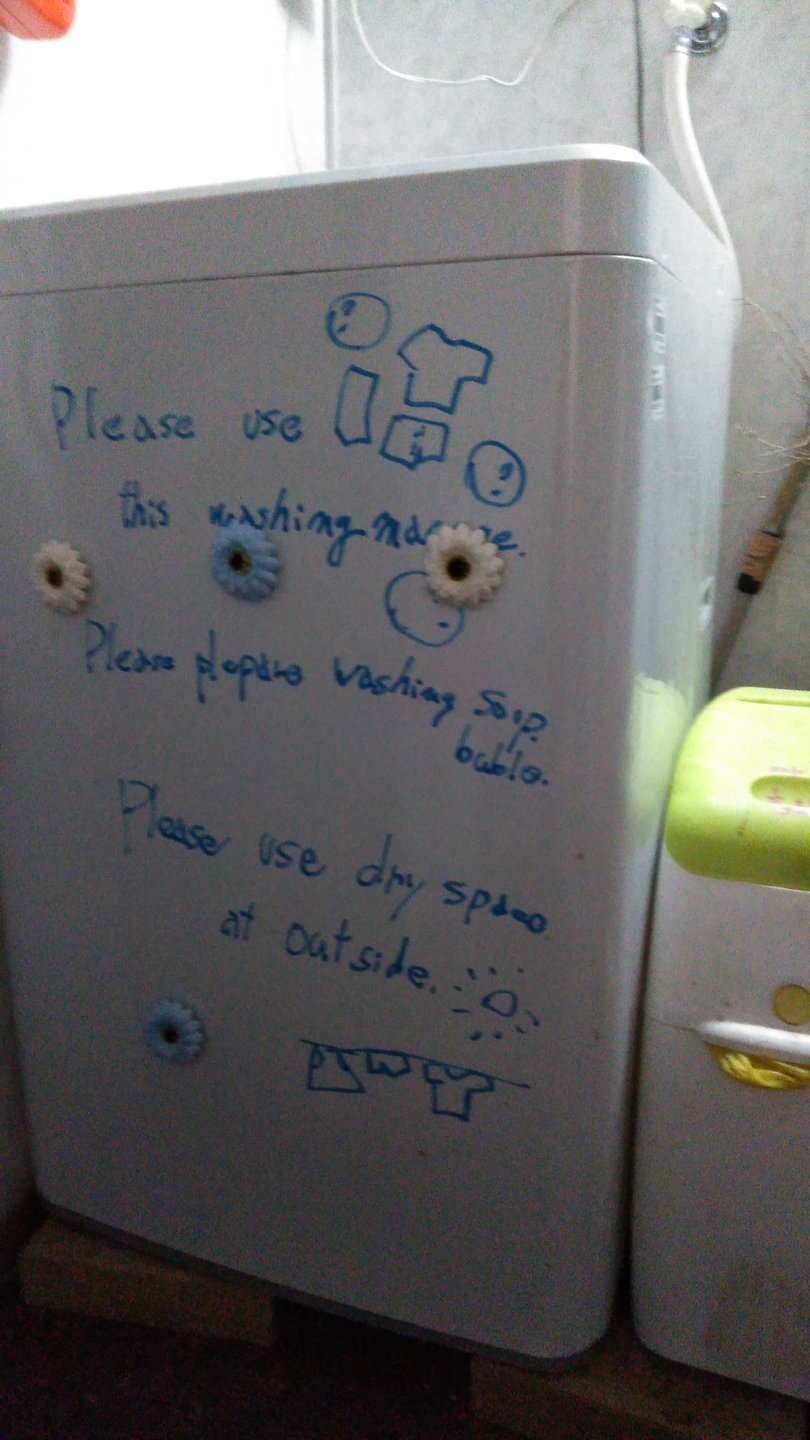 Please use
this washing
Please plepare washing soap.
bable.
Please use dry space
at outside.